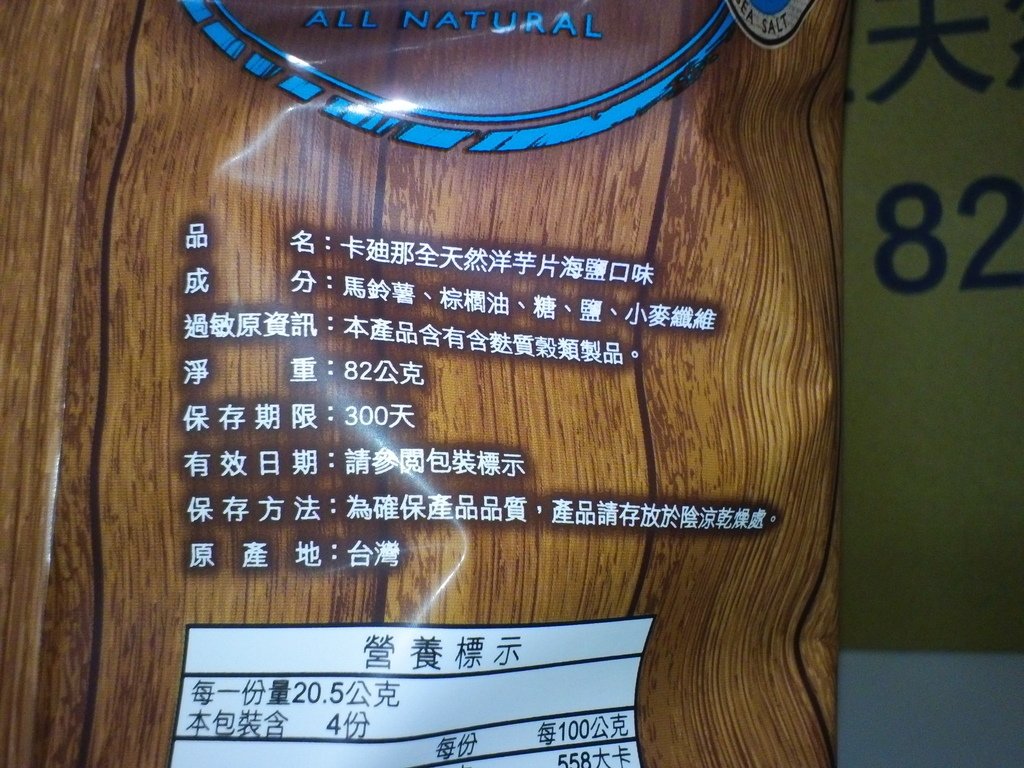 ALL NATURAL
SEA SALT
天
82
品 名：卡廸那全天然洋芋片海鹽口味
成 分：馬鈴薯、棕櫚油、糖、鹽、小麥纖維
過敏原資訊：本產品含有含麩質穀類製品。
淨 重：82公克
保存期限：300天
有效日期：請參閱包裝標示
保存方法：為確保產品品質，產品請存放於陰涼乾燥處。
原 產 地：台灣
營養標示
每一份量20.5公克
本包裝含 4份
每份 每100公克
558大卡